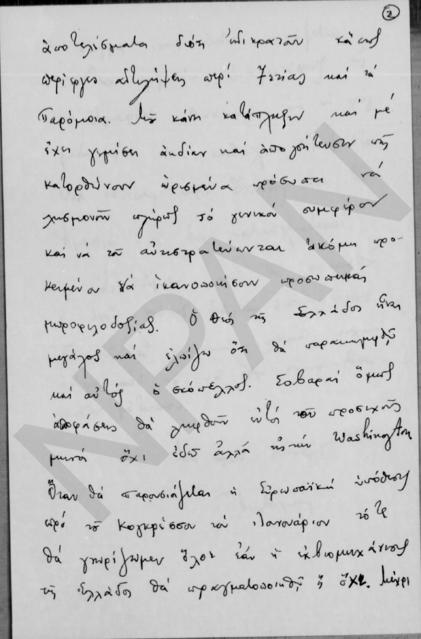 2
ἀποτελέσματα διότι ἐπικρατοῦν κάποιες
περίεργες ἀντιλήψεις περί ἡγεσίας καί τά
παρόμοια. Μοῦ κάνει κατάπληξιν καί μέ
ἔχει γεμίσει ἀηδίαν καί ἀπογοήτευσιν πῶς
κατορθώνουν ὡρισμένα πρόσωπα νά
λησμονοῦν πλήρως τό γενικόν συμφέρον
καί νά τό ἀντιστρατεύωνται ἀκόμη προ-
κειμένου νά ἱκανοποιήσουν προσωπικάς
μικροφιλοδοξίας. Ὁ Θεός τῆς Ἑλλάδος εἶναι
μεγάλος καί ἐλπίζω ὅτι θά παρακαμφθῇ
καί αὐτός ὁ σκόπελλος. Σοβαραί ὅμως
ἀποφάσεις θά ληφθοῦν ἐντός τοῦ προσεχοῦς
μηνός ὄχι ἐδῶ ἀλλά εἰς τήν Washington
Ὅταν θά παρουσιάζεται ἡ Εὐρωπαϊκή ὑπόθεσις
πρό τοῦ Κογκρέσσου τόν Ἰανουάριον τότε
θά γνωρίζωμεν ὅλοι ἐάν ἡ ἐκβιομηχάνισις
τῆς Ἑλλάδος θά πραγματοποιηθῇ ἤ ὄχι. Μέχρι
NPAN